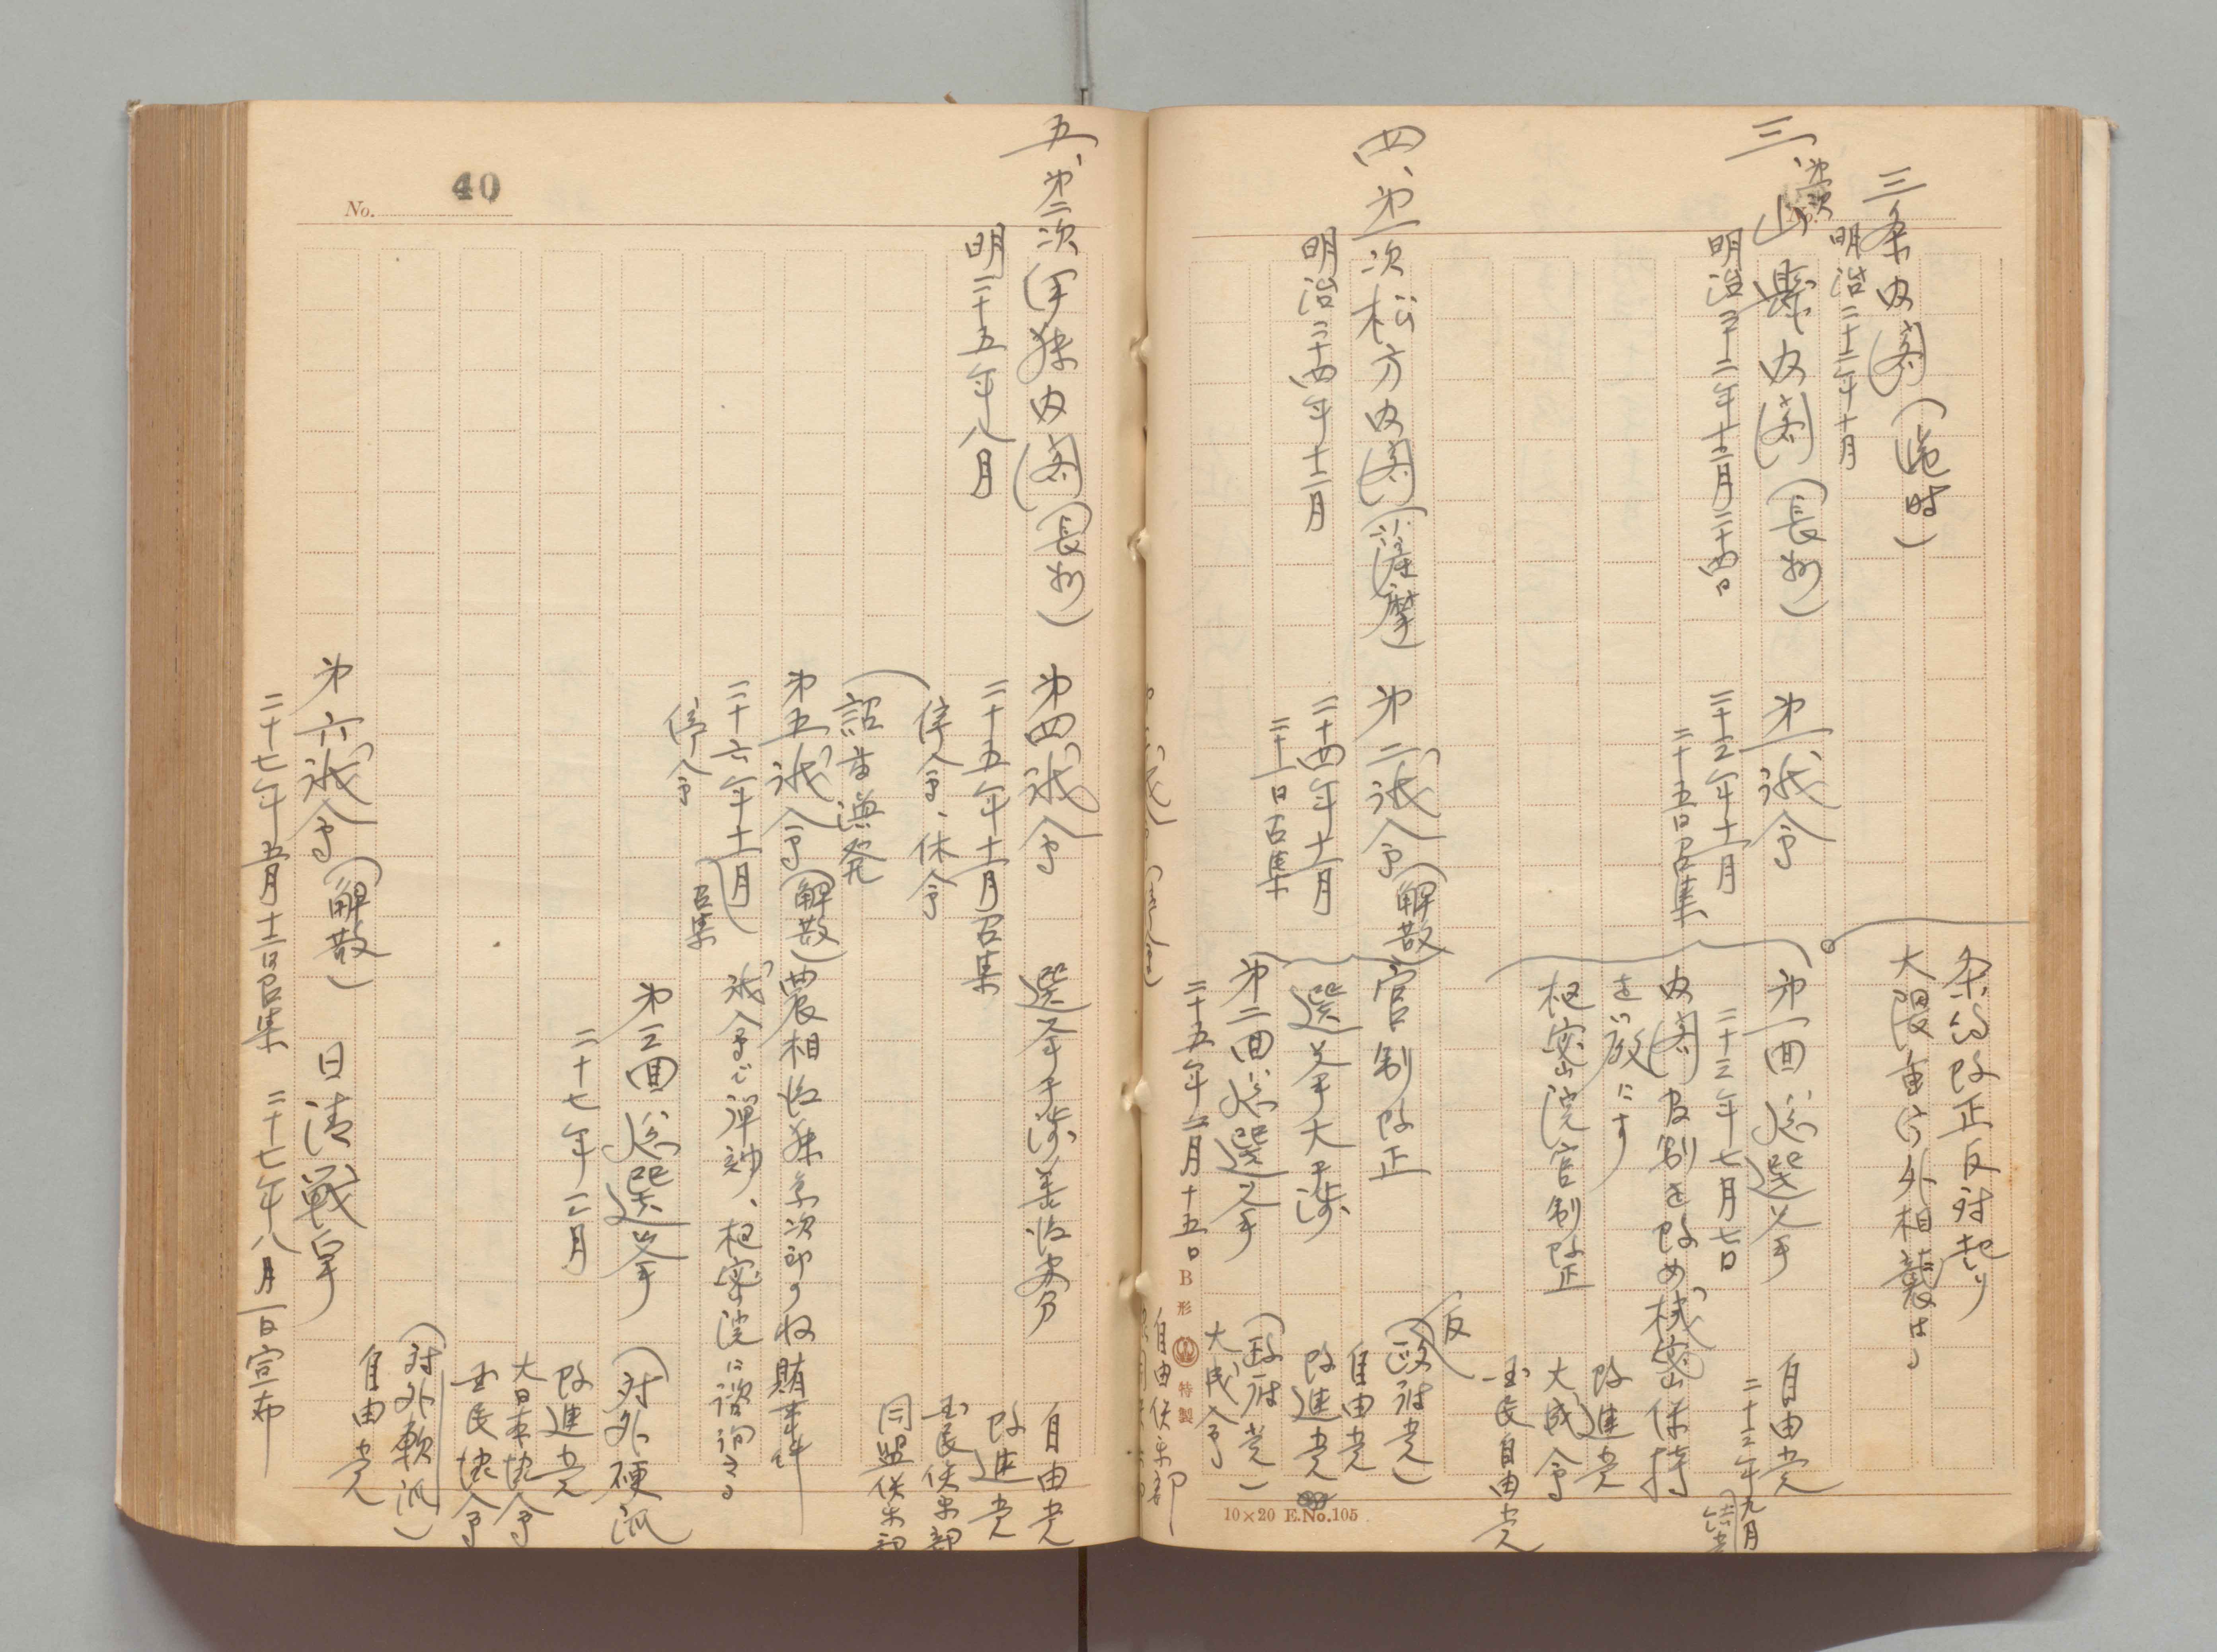 三条内閣(臨時)
明治二十二年十月
条約改正反対起り
大隈重信外相襲はる
三、第一次山県内閣(長州)
明治二十二年十二月二十四日
第一議会
二十三年十一月
二十五日召集
第一回総選挙
二十三年七月七日
内閣官制を改め機密保持
を厳にす
枢密院官制改正
自由党
二十三年九月
改進党
大成会
国民自由党
四、第一次松方内閣(薩摩)
明治二十四年十二月
第二議会(解散)
二十四年十一月
二十一日召集
官制改正
選挙大干渉
第二回総選挙
二十五年二月十五日
(反政府党)
自由党
改進党
(政府党)
大成会
自由倶楽部
B形 特製
10×20 E.No.105
No. 40
五、第二次伊藤内閣(長州)
明二十五年八月
第四議会
二十五年十一月召集
停会、休会
詔書渙発
選挙干渉善後処分
自由党
改進党
国民倶楽部
同盟倶楽部
第五議会(解散)
二十六年十一月召集
停会
農相後藤象次郎の収賄事件
議会で弾劾、枢密院に諮詢さる
第三回総選挙
二十七年三月
(対外硬派
改進党
大日本協会
国民協会
(対外軟派)
自由党
第六議会(解散)
二十七年五月十二日召集
日清戦争
二十七年八月一日宣布